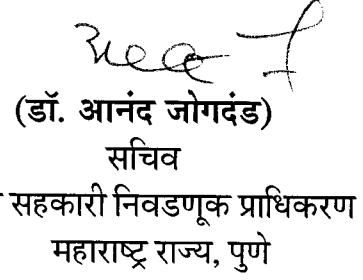 (डॉ. आनंद जोगदंड)
सचिव
सहकारी निवडणूक प्राधिकरण
महाराष्ट्र राज्य, पुणे